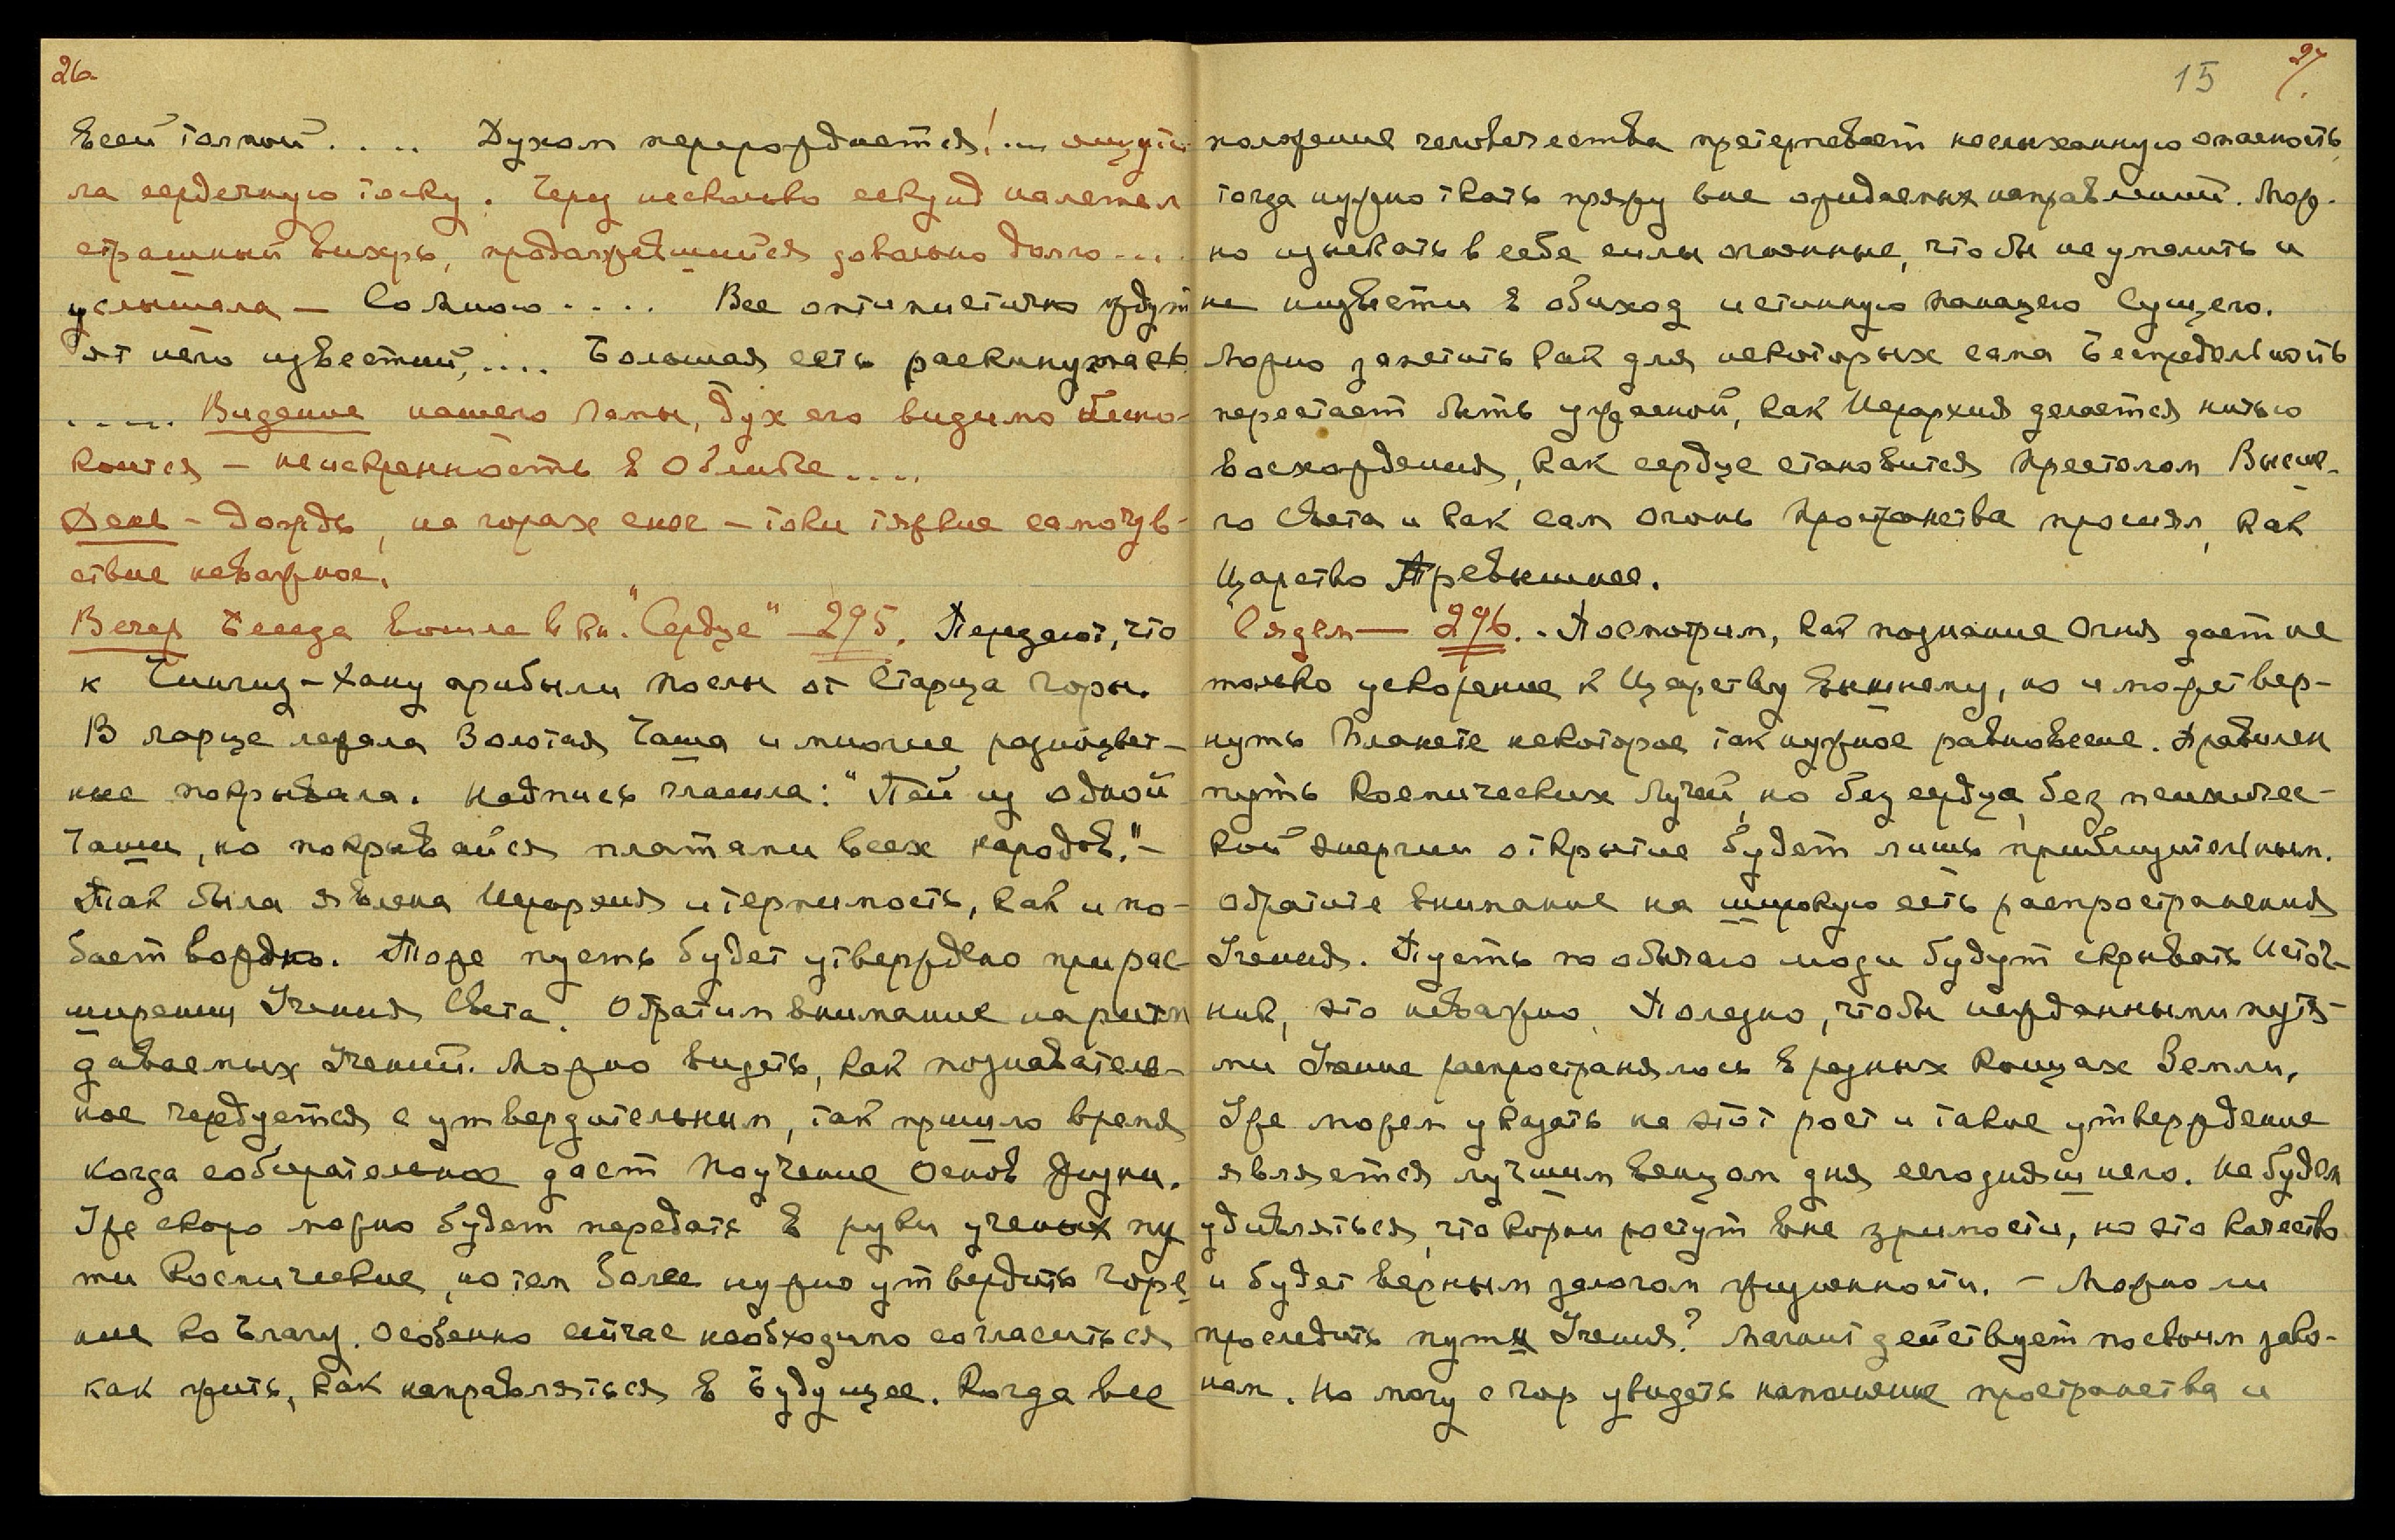 26.
всей толпой..... Духом перерождается!... ощути-
ла сердечную тоску. Через несколько секунд налетел
страшный вихрь, продолжавшийся довольно долго...
услышала — Со Мною.... Все оптимистично ждут
от него известий,.... Большая сеть раскинулась
..... Видение нашего Ламы, дух его видимо беспо-
коится — неискренность в Облике....
День — дождь, на горах снег — токи тяжкие самочув-
ствие неважное.
Вечер Беседа вошла в кн. "Сердце" — 295. Передают, что
к Чингиз-Хану прибыли послы от Старца Горы.
В ларце лежала Золотая Чаша и многие разноцвет-
ные покрывала. Надпись гласила: "Пей из одной
Чаши, но покрывайся платами всех народов."—
Так была явлена Иерархия и терпимость, как и по-
бает вождю. Тоже пусть будет утверждено при рас-
ширении Учения Света. Обратим внимание на ритм
даваемых Учений. Можно видеть, как познаватель-
ное чередуется с утвердительным, так пришло время
когда собирательное дает Поучение Основ Жизни.
Уже скоро можно будет передать в руки ученых пу
ти Космические, но тем более нужно утвердить Горе-
ние ко Благу. Особенно сейчас необходимо согласиться
как жить, как направляться в Будущее. Когда все
15
27.
положение человечества претерпевает неслыханную опасность,
тогда нужно ткать пряжу вне ожидаемых направлений. Мож-
но изыскать в себе силы огненные, чтобы не умалить и
не низвести в обиход истинную помощь Сущего.
Можно заметить как для некоторых сама Беспредельность
перестает быть ужасной, как Иерархия делается нитью
восхождения, как сердце становится Престолом Высше-
го Света и как сам Огонь Пространства просиял, как
Царство Превышнее.
Сядем — 296. - Посмотрим, как познание Огня дает не
только ускорение к Царству Внешнему, но и может вер-
нуть Планете некоторое так нужное равновесие. Правилен
путь Космических Лучей, но без сердца, без психичес-
кой энергии открытие будет лишь приблизительным.
Обратите внимание на широкую сеть распространения
Учения. Пусть по обычаю люди будут скрывать Источ-
ник, это неважно. Полезно, чтобы нежданными путя-
ми Учение распространялось в разных концах Земли.
Уже можем указать на этот рост и такое утверждение
является лучшим венцом дня сегодняшнего. Не будем
удивляться, что корни растут вне зримости, но это качество
и будет верным залогом жизненности. — Можно ли
проследить пути Учения? Магнит действует по своим зако-
нам. Но могу с Гор увидеть напоение пространства и